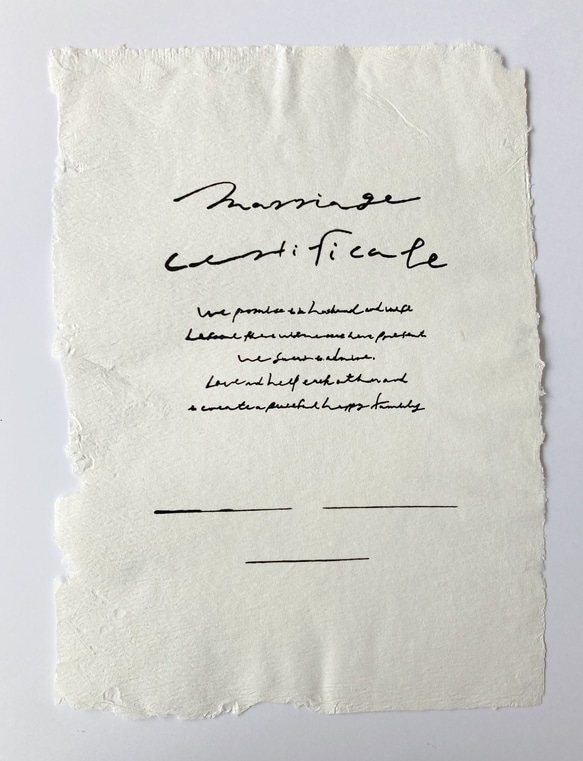 Marriage
certificate
We promise to be husband and wife
before the witnesses here present
We swear to admire,
Love and help each other and
to create a peaceful happy family